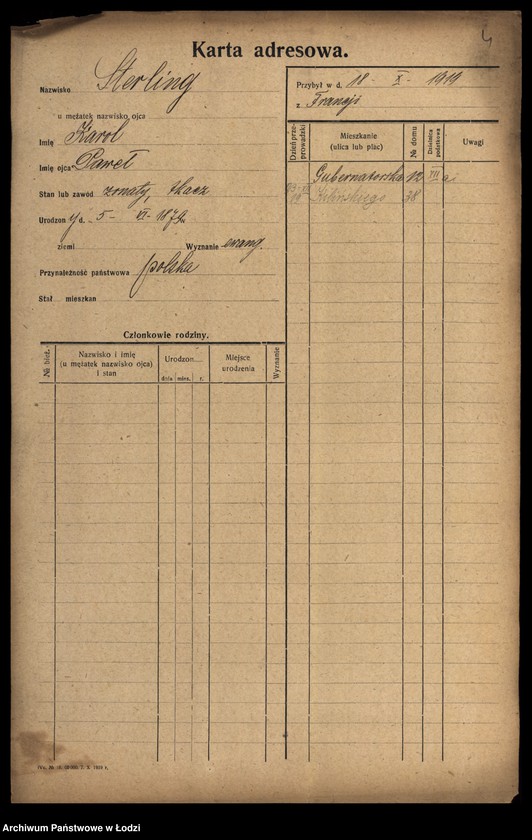 4
Karta adresowa.
Nazwisko Sterling
u mężatek nazwisko, ojca
Imię Karol
Imię ojca Paweł
Stan lub zawód żonaty, tkacz
Urodzon y d. 5 - VI - 1879
ziemi Wyznanie ewang.
Przynależność państwowa polska
Stał mieszkan
Przybył w d. 18 - X - 1919
z Francji
Dzień przeprowadzki
Mieszkanie
(ulica lub plac)
№ domu
Dzielnica podatkowa
Uwagi
Gubernatorska 12 VII
19 Kilińskiego 38
Członkowie rodziny.
№ bież.
Nazwisko i imię
(u mężatek nazwisko ojca)
i stan
Urodzon
dnia mies. r.
Miejsce
urodzenia
Wyznanie
X 1919 r.
Archiwum Państwowe w Łodzi